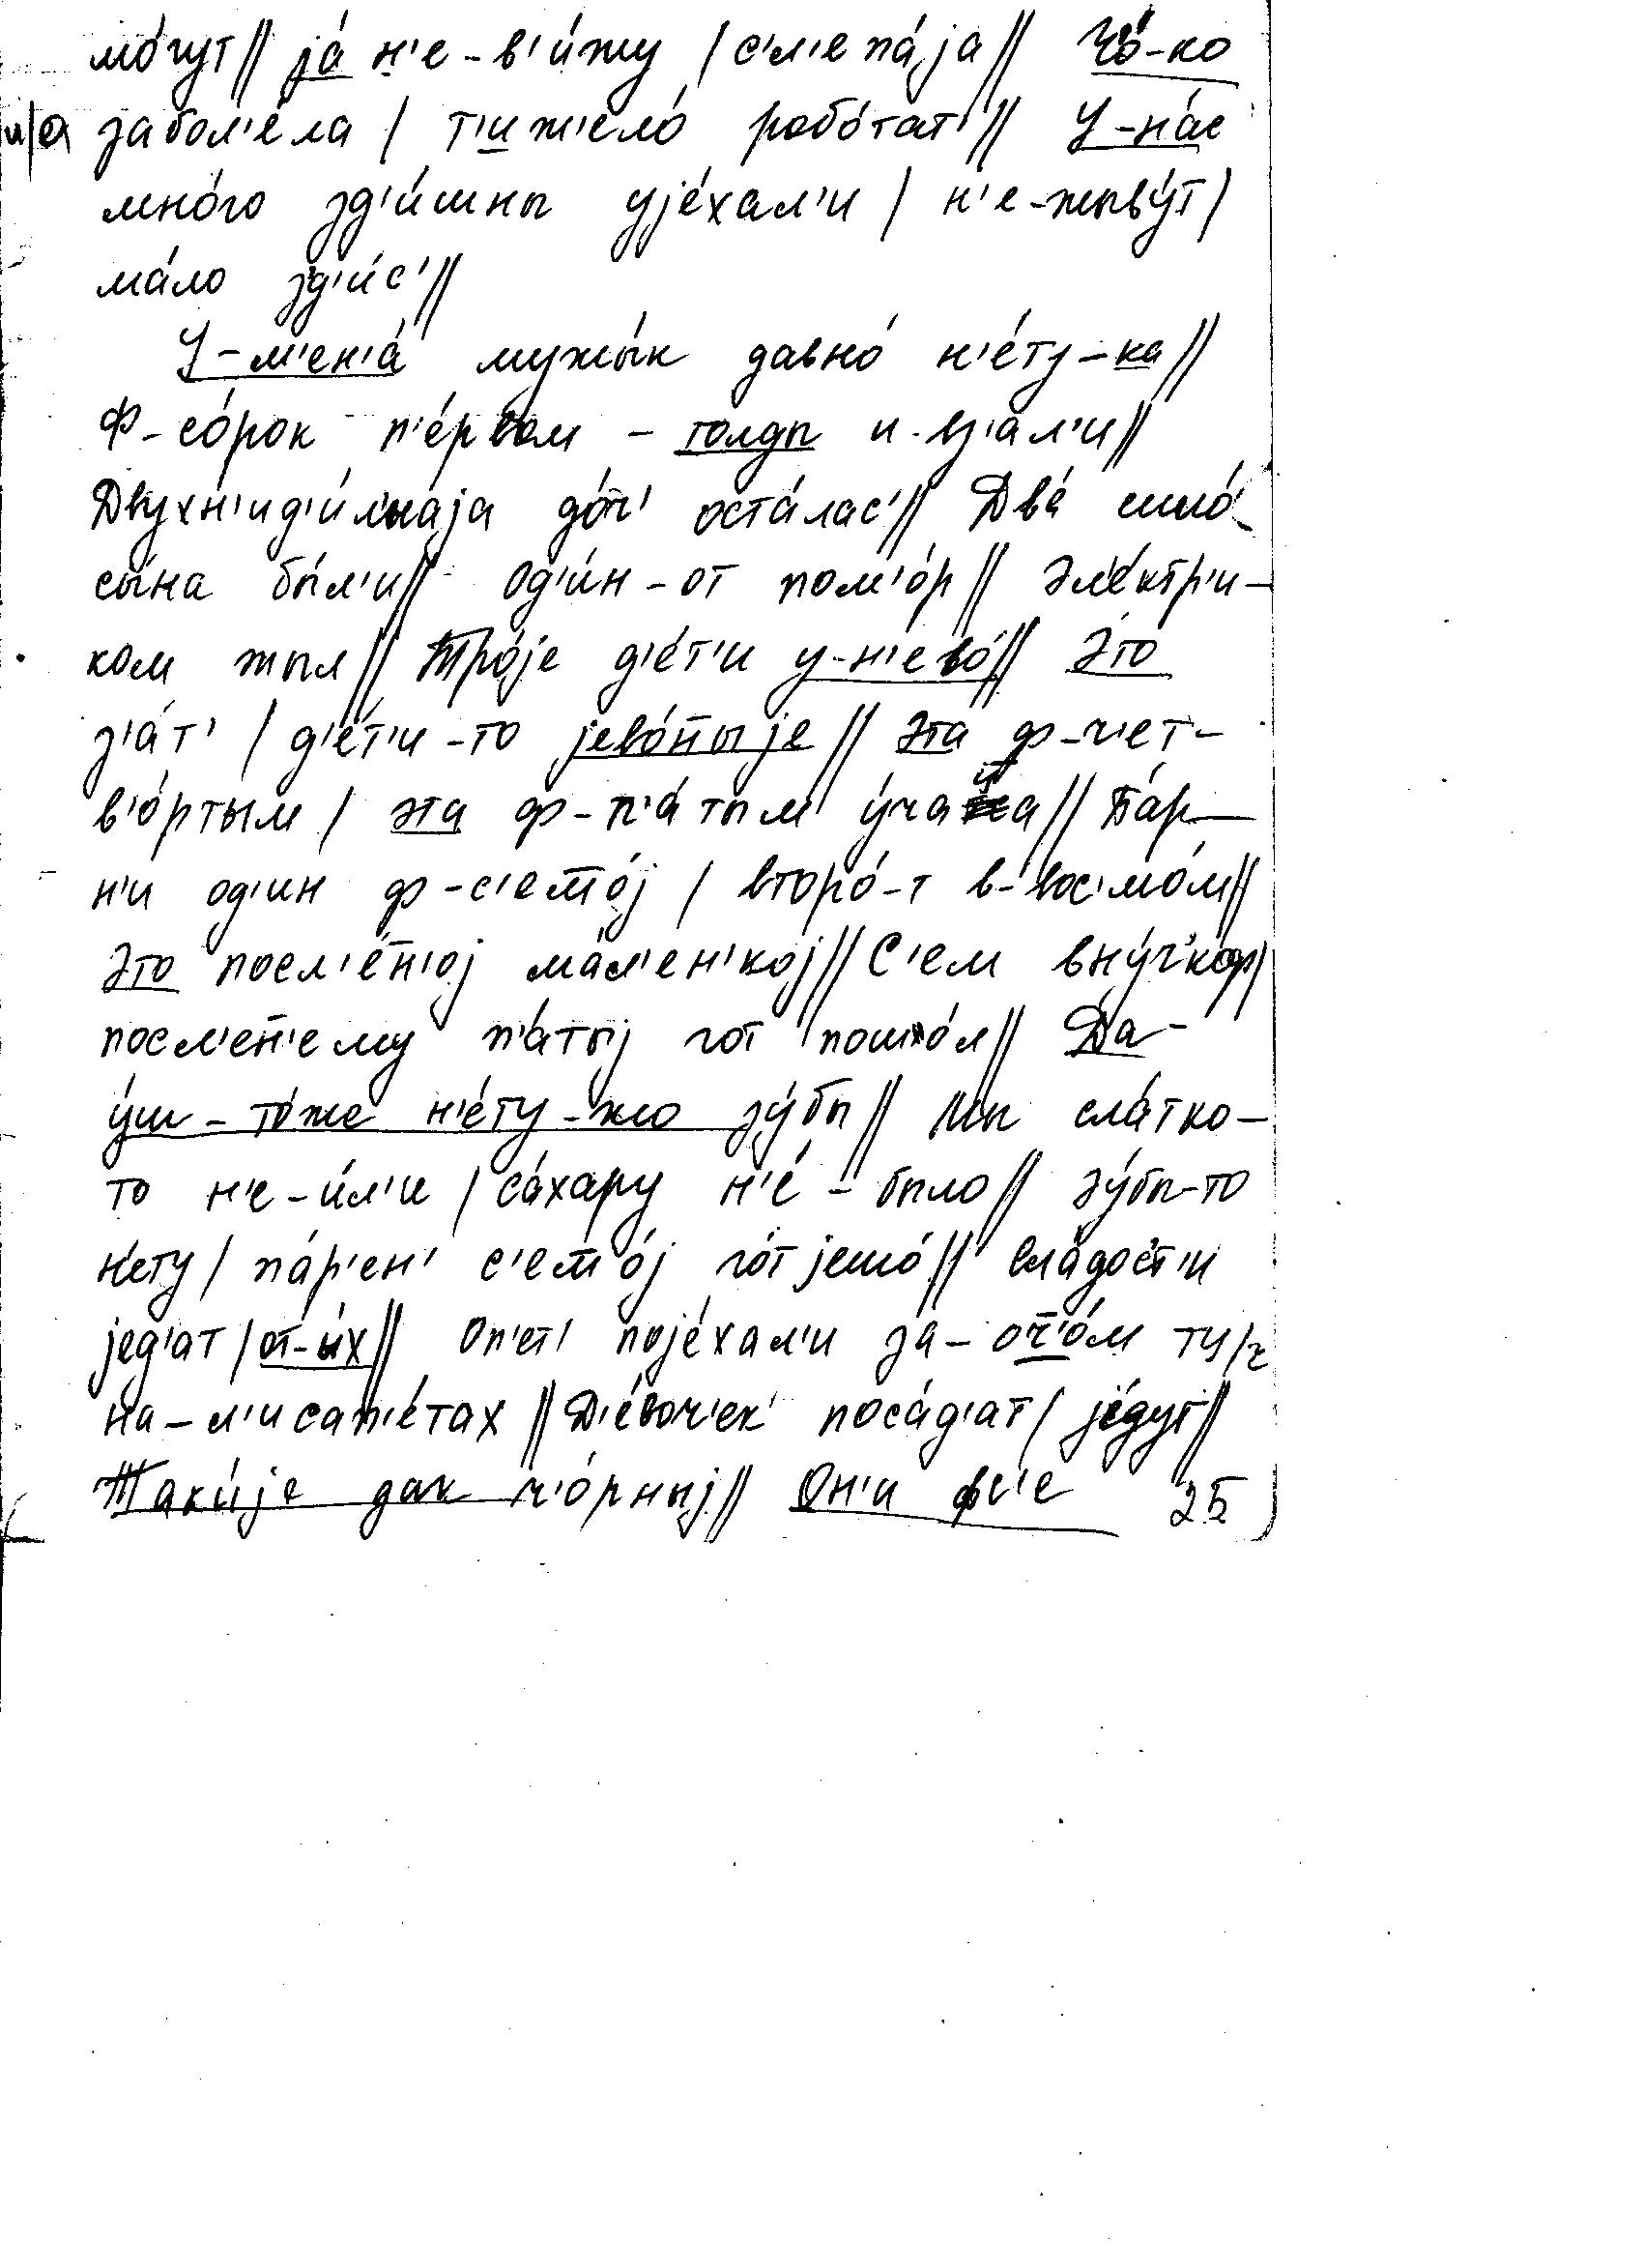 мо́гут// jа́ н'е-в'и́жу /с'л'епа́jа// Чо́-ко
и/а забол'е́ла / т'иж'ело́ робо́тат'// У-на́с
мно́го зд'и́шны уjе́хал'и / н'е-жыву́т/
ма́ло зд'и́с'//
У-м'ен'а́ мужы́к давно́ н'е́ту-ка//
Ф-со́рок п'е́рвом - толды и-вз'а́л'и//
Двухн'ид'и́л'наjа до́ч' оста́лас'// Два́ ишшо́
сы́на бы́л'и// Од'и́н-от пом'о́р// Эл'е́ктр'и-
ком жыл// Тро́jе д'е́т'и у-н'ево́// Э́то
з'а́т' / д'е́т'и-то jево́ныjе// Эта ф-ч'ет-
в'о́ртым / эта ф-п'а́тым у́чаца// Па́р-
н'и од'ин ф-с'ємо́j / второ́-т в-вос'мо́м//
Э́то посл'е́н'оj ма́л'ен'коj// С'ем вну́ч'коф/
посл'е́н'ему п'а́тыj гот пошо́л// Да-
у́ш-то́же н'е́ту-жо зу́бы// Мы сла́тко-
то н'е-и́л'и /са́хару н'е́-было// Зу́бы-то
н'е́ту / па́р'ен' с'емо́j го́т jешо́// Сла́дост'и
jед'а́т /от-ы́х// Оп'ет' поjе́хал'и за-оч'о́м ту/т
на-л'исап'е́тах// Д'е́воч'ек поса́д'ат / jе́дут//
Таки́jе дак ч'о́рныj// Он'и фс'е 25